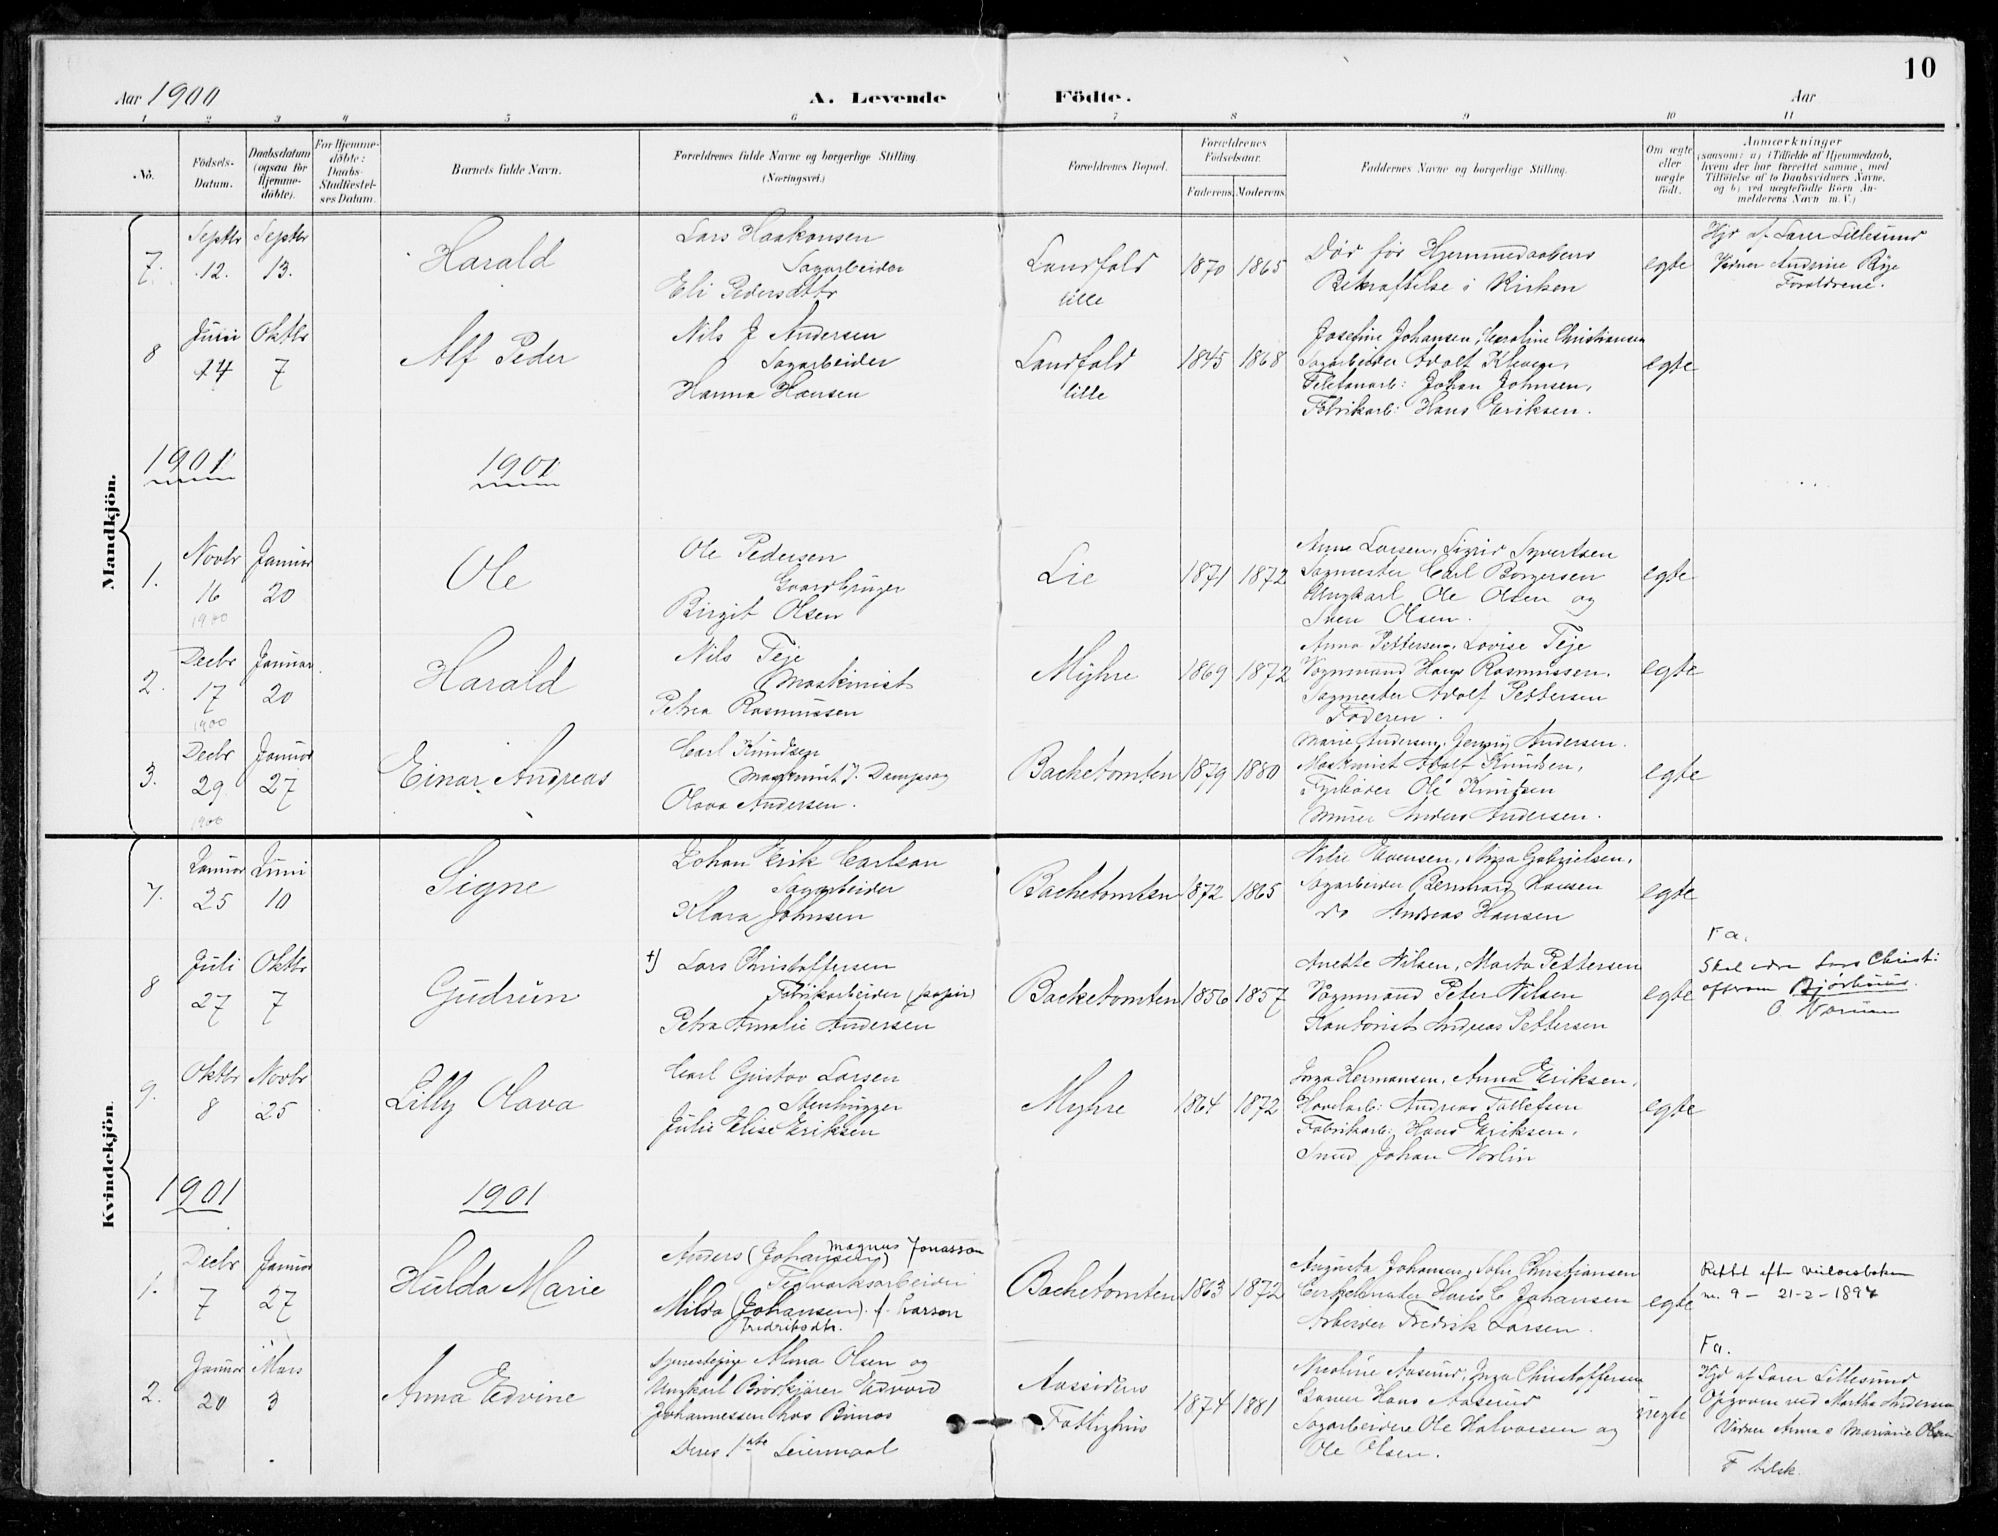 10
Aar 1900
A. Levende Födte.
Aar
1 2 3 4 5 6 7 8 9 10 11
No.
Födsels-Datum.
Daabsdatum (ogsaa for Hjemme-döbte).
For Hjemme-döbte: Daabs-Stadfæstel-ses Datum.
Barnets fulde Navn.
Forældrenes fulde Navne og borgerlige Stilling.
(Næringsvei.)
Forældrenes Bopæl.
Forældrenes Födselsaar.
Faderens. Moderens.
Faddernes Navne og borgerlige Stilling.
Om ægte eller uægte födt.
Anmærkninger
(saasom: a) i Tilfælde af Hjemmedaab,
hvem der har forrettet samme, med
Tilföielse af to Daabsvidners Navne,
og b) ved uægtefödte Börn An-
melderens Navn m. V.)
Mandkjön.
7. Septbr 12. Septbr 13.
Harald
Lars Haakonsen
Sagarbeider
Eli Pedersdtr
Landfald
lille
1870 1865
Død før Hjemmedaabens
Bekræftelse i Kirken
egte
Hjd af Lærer Lillesund
Vidner Andrine Rye
Forældrene.
8 Juni 14 Oktbr 7
Alf Peder
Nils J Andersen
Sagarbeider
Hanna Hansen
Landfald
lille
1845 1868
Josefine Johansen, Caroline Christiansen
Sagarbeider Adolf
Johan Johnsen,
Fabrikarb: Hans Eriksen.
egte
1901 1901
1. Novbr 16 1900 Januar 20
Ole
Ole Pedersen
Gaardbruger
Birgit Olsen
Lie
1871 1872
Anne Larsen, Sigrid Syvertsen
Sagmester Carl Borgersen
Ungkarl Ole Olsen og
Sven Olsen.
egte
2. Decbr 17 1900 Januar 20
Harald
Nils Teje
Maskinist
Petrea Rasmussen
Myhre
1869 1872
Anna Pettersen, Lovise Teje
Vognmand Hans Rasmussen.
Sagmester Adolf Pettersen
Faderen.
egte
3. Decbr 29 1900 Januar 27
Einar Andreas
Carl Knudsen
Maskinist v. Dampsag
Olava Andersen.
Bachetomten
1879 1880
Marie Andersen, Jenny Andersen.
Maskinist Adolf Knudsen,
Fyrbøder Ole Knudsen
Murer Anders Andersen.
egte
Kvindekjön.
7. Januar 25 Juni 10
Signe
Johan Erik Carlson
Sagarbeider
Klara Johnsen
Bachetomten
1872 1865
Evensen, Anna Gabrielsen,
Sagarbeider Bernhard Hansen
do Andreas Hansen
egte
8 Juli 27 Oktbr 7
Gudrun
+) Lars Christoffersen
Fabrikarbeider (papir)
Petra Amalie Andersen
Bachetomten
1856 1857
Anette Nilsen, Marta Pettersen
Vognmand Peter Nilsen
Kontorist Andreas Pettersen
egte
Fa.
Skal være Lars Christ:
offersen Bjørhuus.
9. Oktbr 8 Novbr 25
Lilly Olava
Carl Gustav Larsen
Stenhugger
Julie Elise Eriksen
Myhre
1864 1872
Inga Hermansen, Anna Eriksen,
Høvelarb: Andreas Tollefsen
Fabrikarb: Hans Eriksen,
Smed Johan Norlin
egte
1901 1901
1. Decbr 7 Januar 27
Hulda Marie
Anders (Johansen) Magnus Jonasson
Teglværksarbeider
Milda (Johansen) f. Larson
Fredriksdtr.
Bachetomten
1863 1872
Augusta Johansen, Sofie Christiansen
Hans C Johansen
Arbeider Fredrik Larsen.
egte
Rettet efter vielsesboken
nr. 9 - 21-2-1897
2. Januar 20 Mars 3
Anna Edvine
Tjenestepige Alma Olsen og
Ungkarl Edvard
Johannessen hos
Deres 1ste Leiermaal
Aassidens
Fattighus
1874 1881
Nicoline Aaserud, Inga Christoffersen
Hans Aaserud
Sagarbeidere Ole Halvorsen og
Ole Olsen.
uegte
Fa.
Hjd af Lærer Lillesund
Opgiven ved Martha Andersen
Vidner Anna & Mariane Olsen
F tilsk.